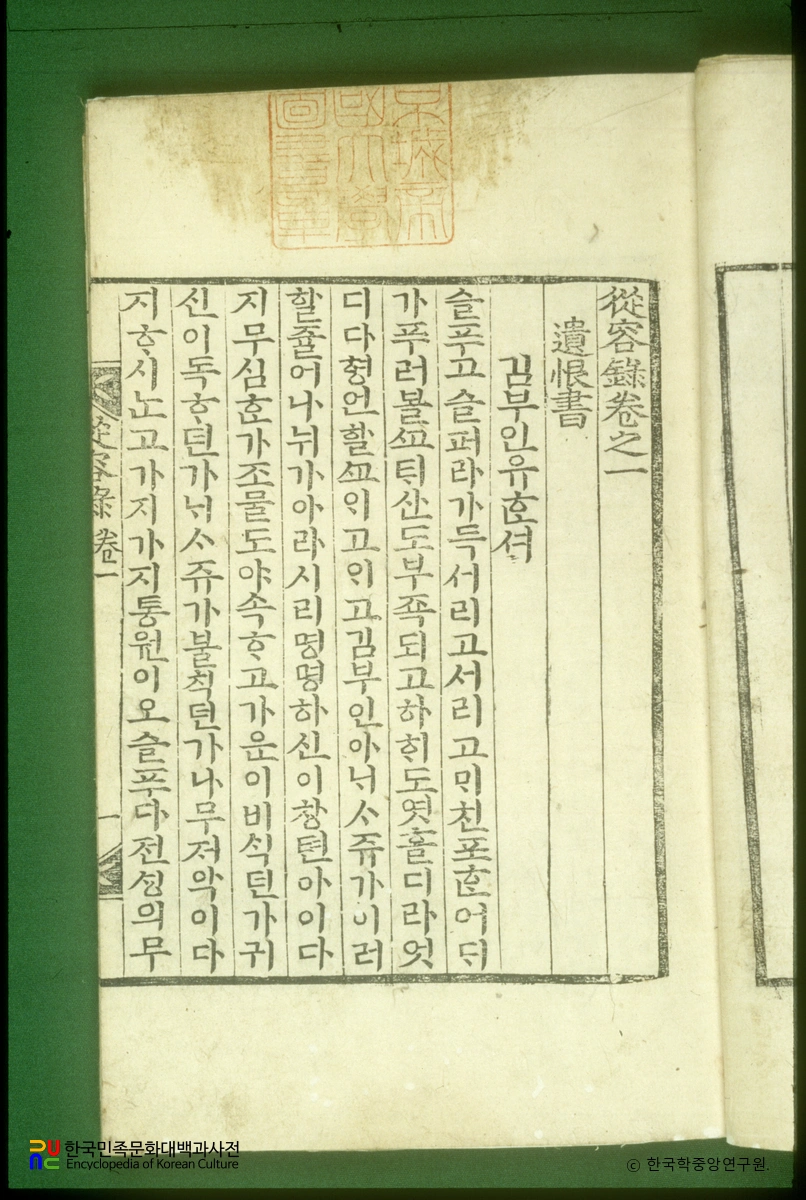 從容錄卷之一
遺恨書
김부인유ᄒᆞᆫ셔
슬푸고슬퍼라가득서리고서리고ᄆᆡ친포ᄒᆞᆫ어ᄃᆡ
가푸러볼ᄭᅭ튀산도부쪽되고하ᄒᆡ도엿홀디라엇
디다형언ᄒᆞᆯᄭᅩᄋᆡ고ᄋᆡ고김부인아ᄂᆡᄉᆞ쥬가이러
할쥴어나뉘가아라시리명명하신이창텬아이다
지무심ᄒᆞᆫ가조물도야속ᄒᆞ고가운이비식던가귀
신이독ᄒᆞ던가ᄂᆡᄉᆞ쥬가불칙던가나무저악이다
지ᄒᆞ시노고가지가지통원이오슬푸다전ᄉᆡᆼ의무
從容錄 卷一
一
京城帝國大學圖書章
한국민족문화대백과사전
Encyclopedia of Korean Culture
© 한국학중앙연구원.